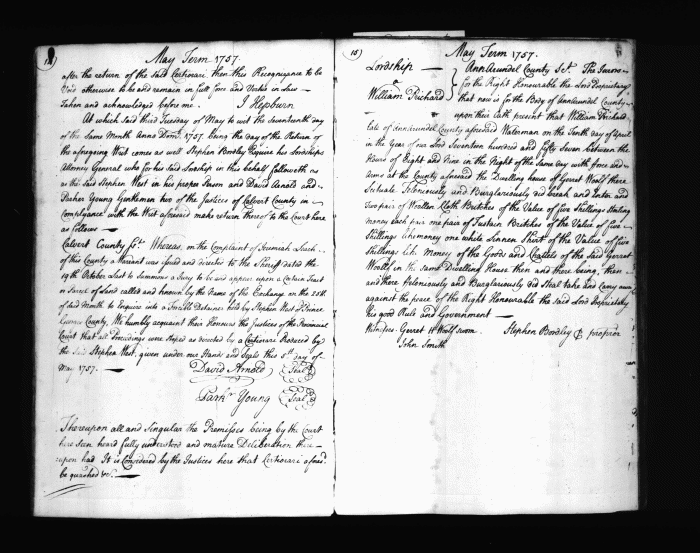 May Term 1757.
after the return of the said Certiorari then this Recognizance to be
Void otherwise to be and remain in full force and Virtue in Law
Taken and acknowledged before me. J Hepburn
At which said third Tuesday of May to wit the Seventeenth day
of the same Month Anno Domi. 1757 being the day of the Return of
the aforegoing Writ comes as well Stephen Bordley Esquire his Lordships
Attorney General who for his said Lordship in this behalf followeth as
as the said Stephen West in his proper Person and David Arnold and
Parker Young Gentlemen two of the Justices of Calvert County in
Compliance with the Writ aforesaid make return thereof to the Court here
as follows
Calvert County Sct. Whereas on the Complaint of Jeremiah
of this County a Warrant was issued and directed to the Sheriff dated the
19th October Last to Summons a Jury to be and appear upon a Certain Tract
or Parcel of Land called and known by the Name of the Exchange on the 25th
of said Month to Enquire into a Forcible Detainer held by Stephen West of Prince
Georges County, We humbly acquaint their Honours the Justices of the Provincial
Court that all Proceedings were stoped as directed by a Certiorari Produced by
the said Stephen West, given under our Hands and Seals this 5th day of
May 1757.
David Arnold (Seal)
Parkr Young (Seal)
Thereupon all and Singular the Premisses being by the Court
here seen heard fully understood and mature Deliberation there
upon had It is Considered by the Justices here that Certiorari afsd.
be quashed &c.
15)
May Term 1757.
Lordship
William Prichard
AnnArundel County Sct. The Jurors
for the Right Honourable the Lord Proprietary
that now is for the Body of AnnArundel County
upon their Oath present that William Prichard
late of AnnArundel County aforesaid Waterman on the Tenth day of April
in the Year of our Lord Seventeen hundred and fifty Seven between the
Hours of Eight and Nine in the Night of the same day with force and
arms at the County aforesaid the Dwelling house of Garret Woolf there
Scituate Feloniously and Burglariously did break and Enter and
two pair of Woollen Cloth Britches of the Value of five Shillings Sterling
money each pair one pair of Fustain Britches of the Value of five
Shillings like money one white Linnen Shirt of the Value of five
Shillings like Money of the Goods and Chattels of the said Garret
Woolf in the same Dwelling House then and there being, then
and there feloniously and Burglariously did Steal take and Carry away
against the peace of the Right Honourable the said Lord Proprietary
his good Rule and Government
Witnesses Gerret Stephen Bordley
John Smith